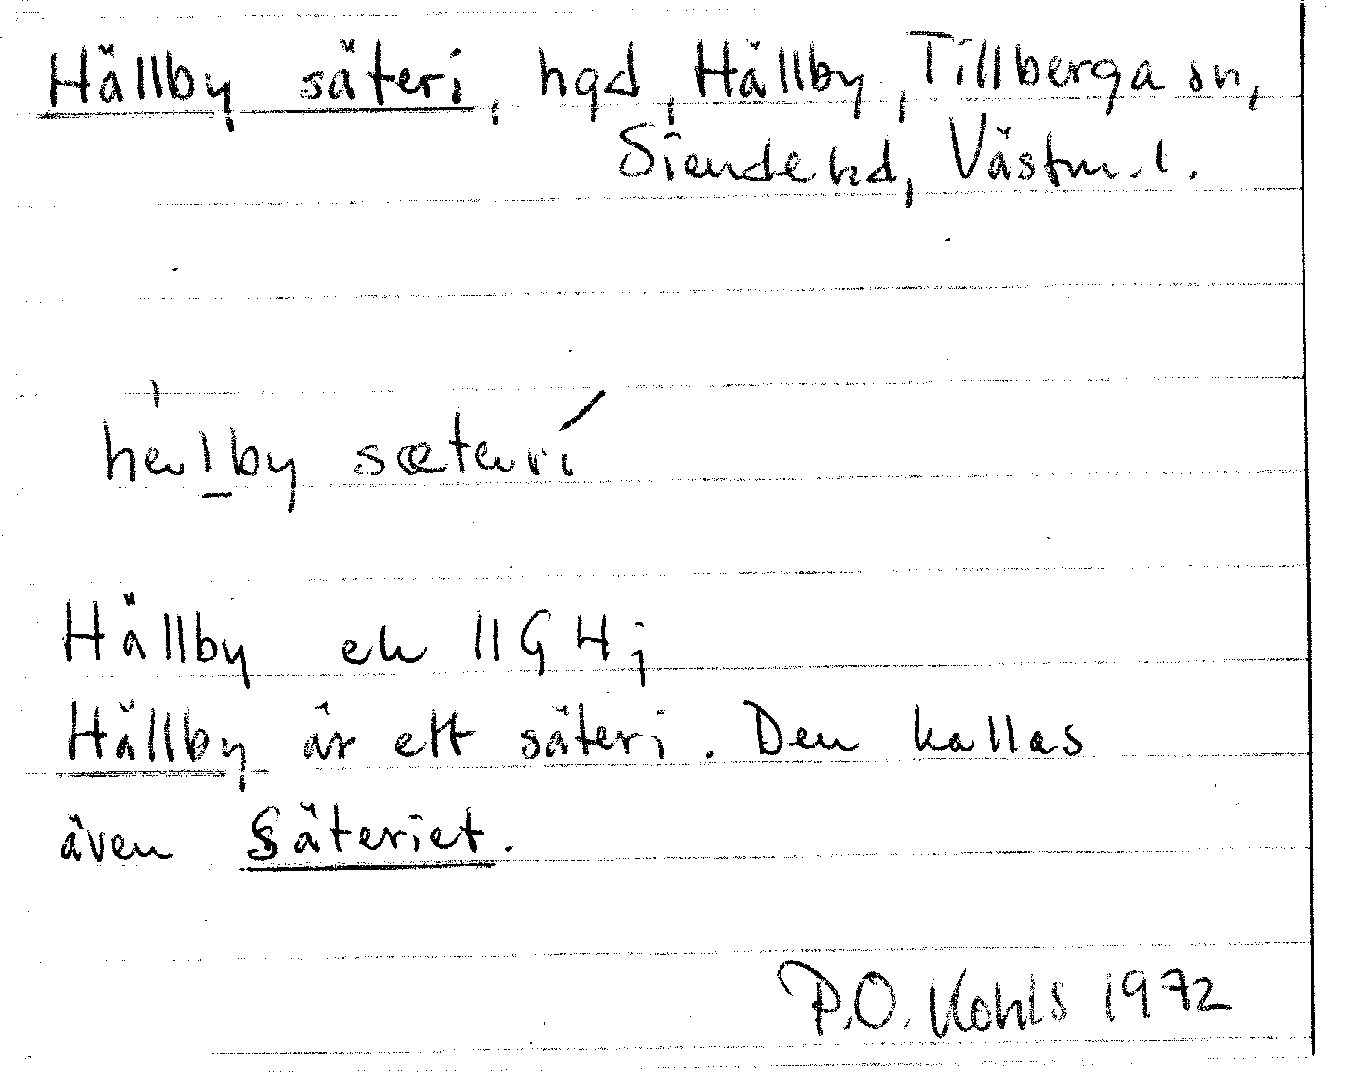 Hällby säteri, hgd, Hällby, Tillberga sn,
Siende hd, Västm. l.
sæteri
Hällby ek 11G 4j
Hällby är ett säteri. Den kallas
även Säteriet.
P.O. Kohls 1972